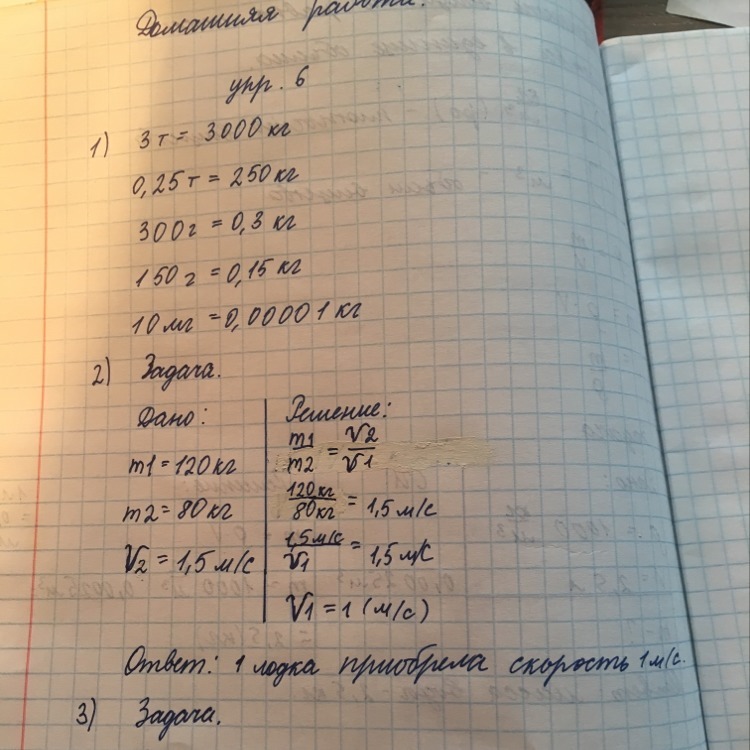 Домашняя работа.
упр. 6
1) 3 т = 3000 кг
0,25 т = 250 кг
300 г = 0,3 кг
150 г = 0,15 кг
10 мг = 0,00001 кг
2) Задача.
Дано:
m1 = 120 кг
m2 = 80 кг
V2 = 1,5 м/с
Решение:
m1/m2 = V2/V1
120 кг/80 кг = 1,5 м/с
1,5 м/с/V1 = 1,5 м/с
V1 = 1 (м/с)
Ответ: 1 лодка приобрела скорость 1 м/с.
3) Задача.